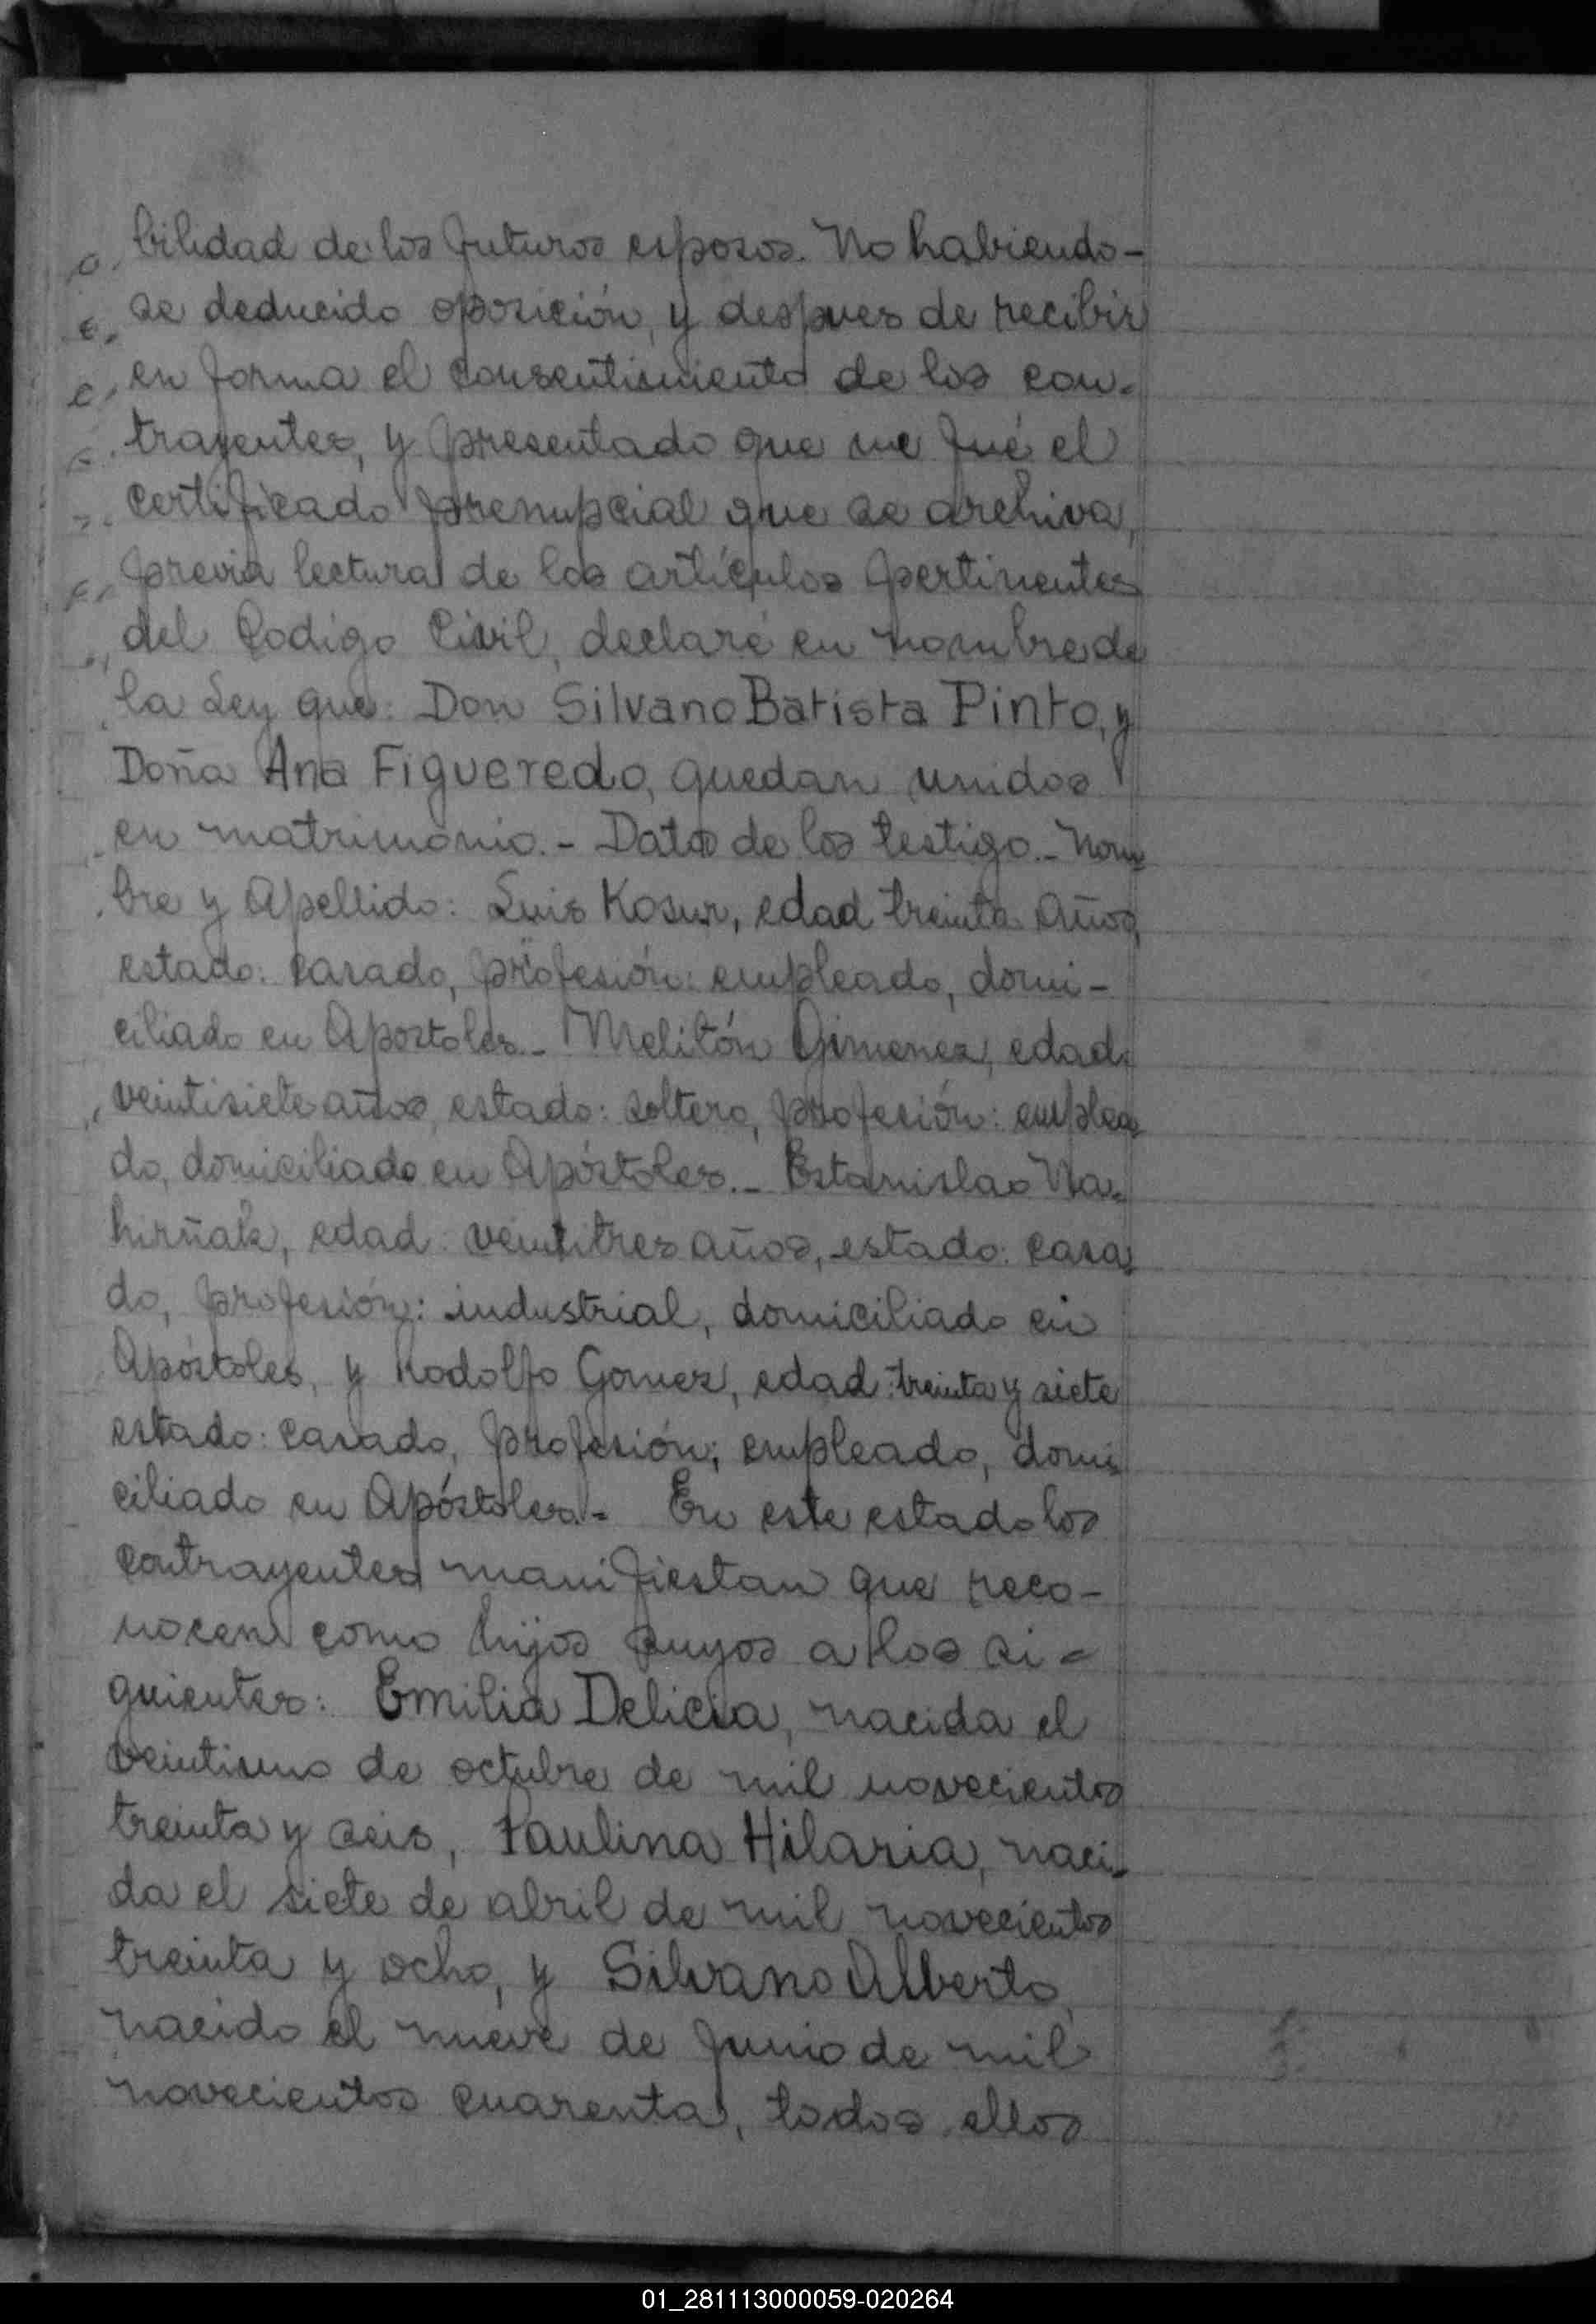 bilidad de los futuros esposos. No habiendo-
se deducido oposición, y despues de recibir
en forma el consentimiento de los con-
trayentes, y presentado que me fué el
certificado prenupcial que se archiva,
previa lectura de los artículos pertinentes
del Codigo Civil, declaré en nombre de
la Ley que: Don Silvano Batista Pinto, y
Doña Ana Figueredo, quedan unidos
en matrimonio.- Datos de los testigo.- Nom-
bre y Apellido: Luis Kosur, edad treinta años,
estado: casado, profesión: empleado, domi-
ciliado en Apostoles.- Melitón Gimenez, edad:
veintisiete años, estado: soltero, profesión: emplea-
do, domiciliado en Apóstoles.- Estanislao Na-
hirñak, edad: veintitres años, estado: casa-
do, profesión: industrial, domiciliado en
Apóstoles, y Rodolfo Gomez, edad: treinta y siete
estado: casado, profesión: empleado, domi-
ciliado en Apóstoles.- En este estado los
contrayentes manifiestan que reco-
nocen como hijos suyos a los si-
guientes: Emilia Delicia, nacida el
veintiuno de octubre de mil novecientos
treinta y seis, Paulina Hilaria, naci-
da el siete de abril de mil novecientos
treinta y ocho, y Silvano Alberto,
nacido el nueve de junio de mil
novecientos cuarenta, todos ellos
01_281113000059-020264